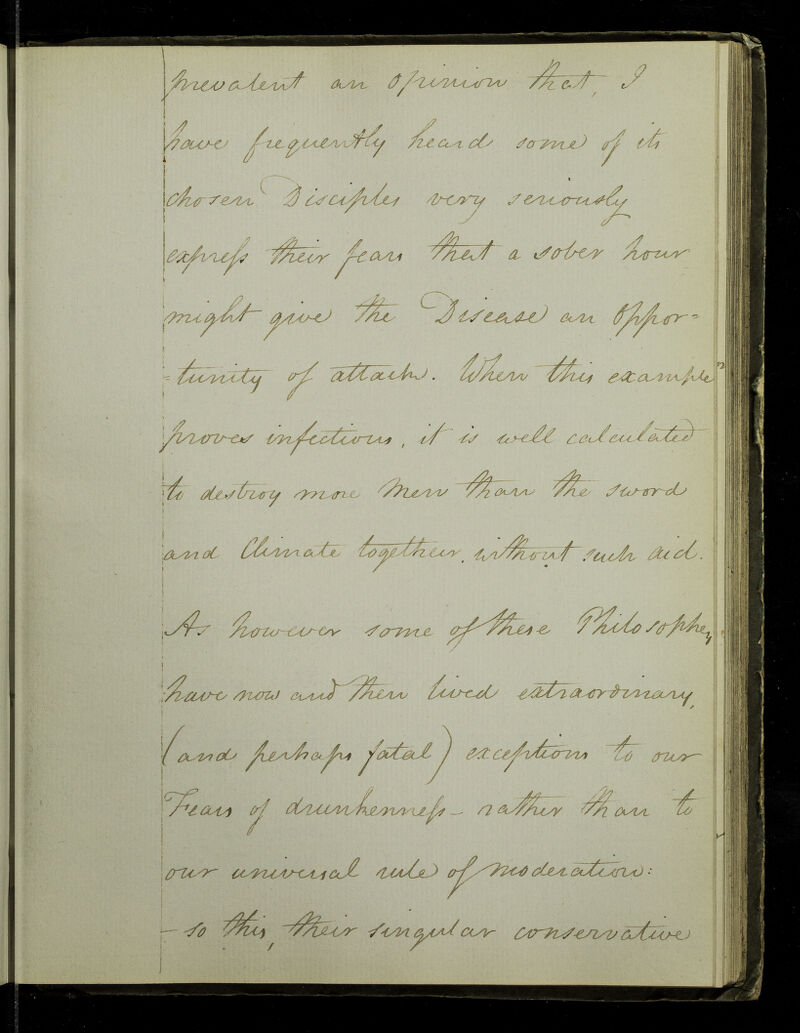 prevalent an opinion that, I
have frequently heard some of its
chosen Disciples very seriously
express their fears that a sober hour
might give the Disease an Oppor=
=tunity of attack. When this example
proves infectious, it is well calculated
to destroy more Men than the sword
and Climate together, without such aid.
As however some of these Philosophers
have now and then lived extraordinary,
(and perhaps fatal) exceptions to our
Fears of drunkenness – rather than to
our universal rule of moderation:
– so this, their singular conservative